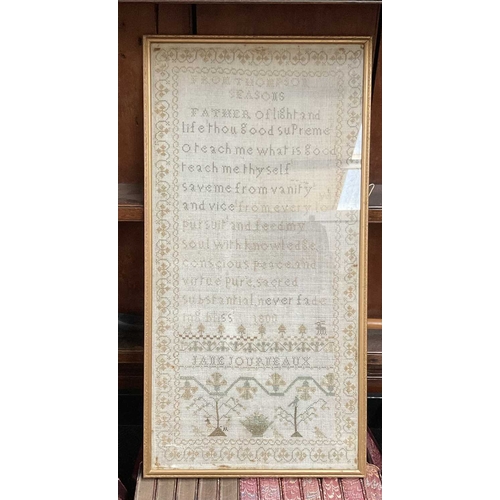 THOMPSON
SEASONS
FATHER of light and
life thou good suPreme
O teach me what is good
teach me thy self
save me from vanity
and vice from every low
pursuit and feed my
soul with knowledge
conscious peace and
virtue pure, sacred
substantial, never fade
ing bliss 1800
JANE JOURNEAUX